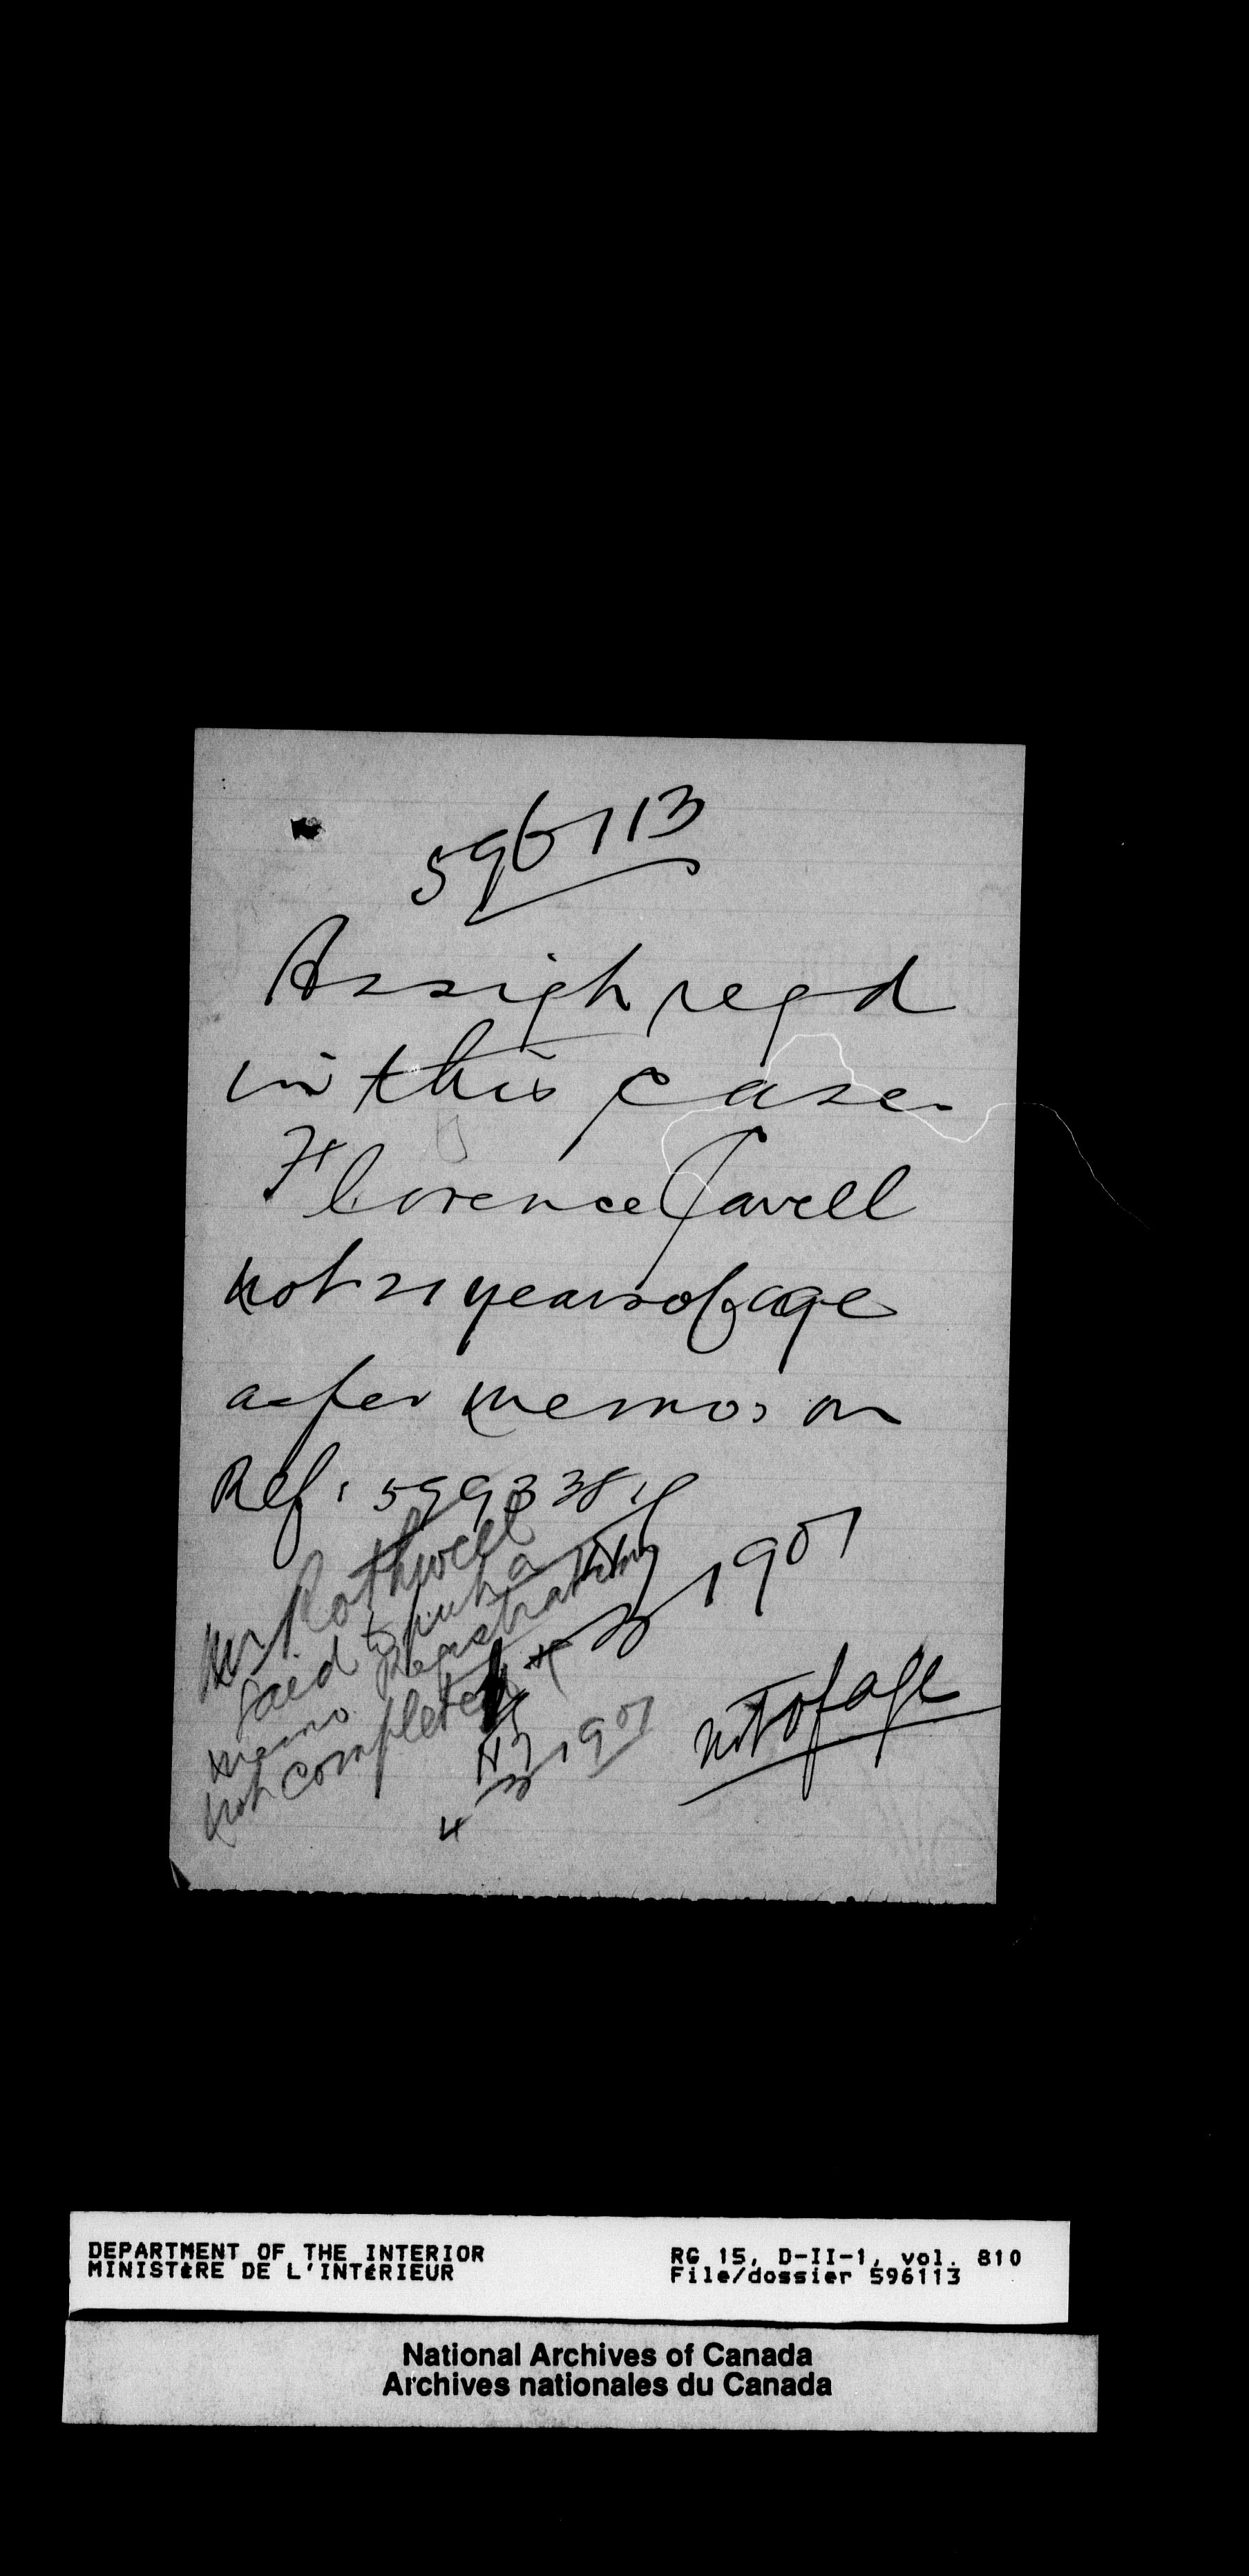 596113
Assign regd
in this case.
Florence Cavell
not 21 years of age
as per memo, on
Ref: 599338
1901
Mr Rothwell
said to put a
memo Registration
not completed
1901
not of age
DEPARTMENT OF THE INTERIOR
MINISTÈRE DE L'INTÉRIEUR
RG 15, D-II-1, vol. 810
File/dossier 596113
National Archives of Canada
Archives nationales du Canada